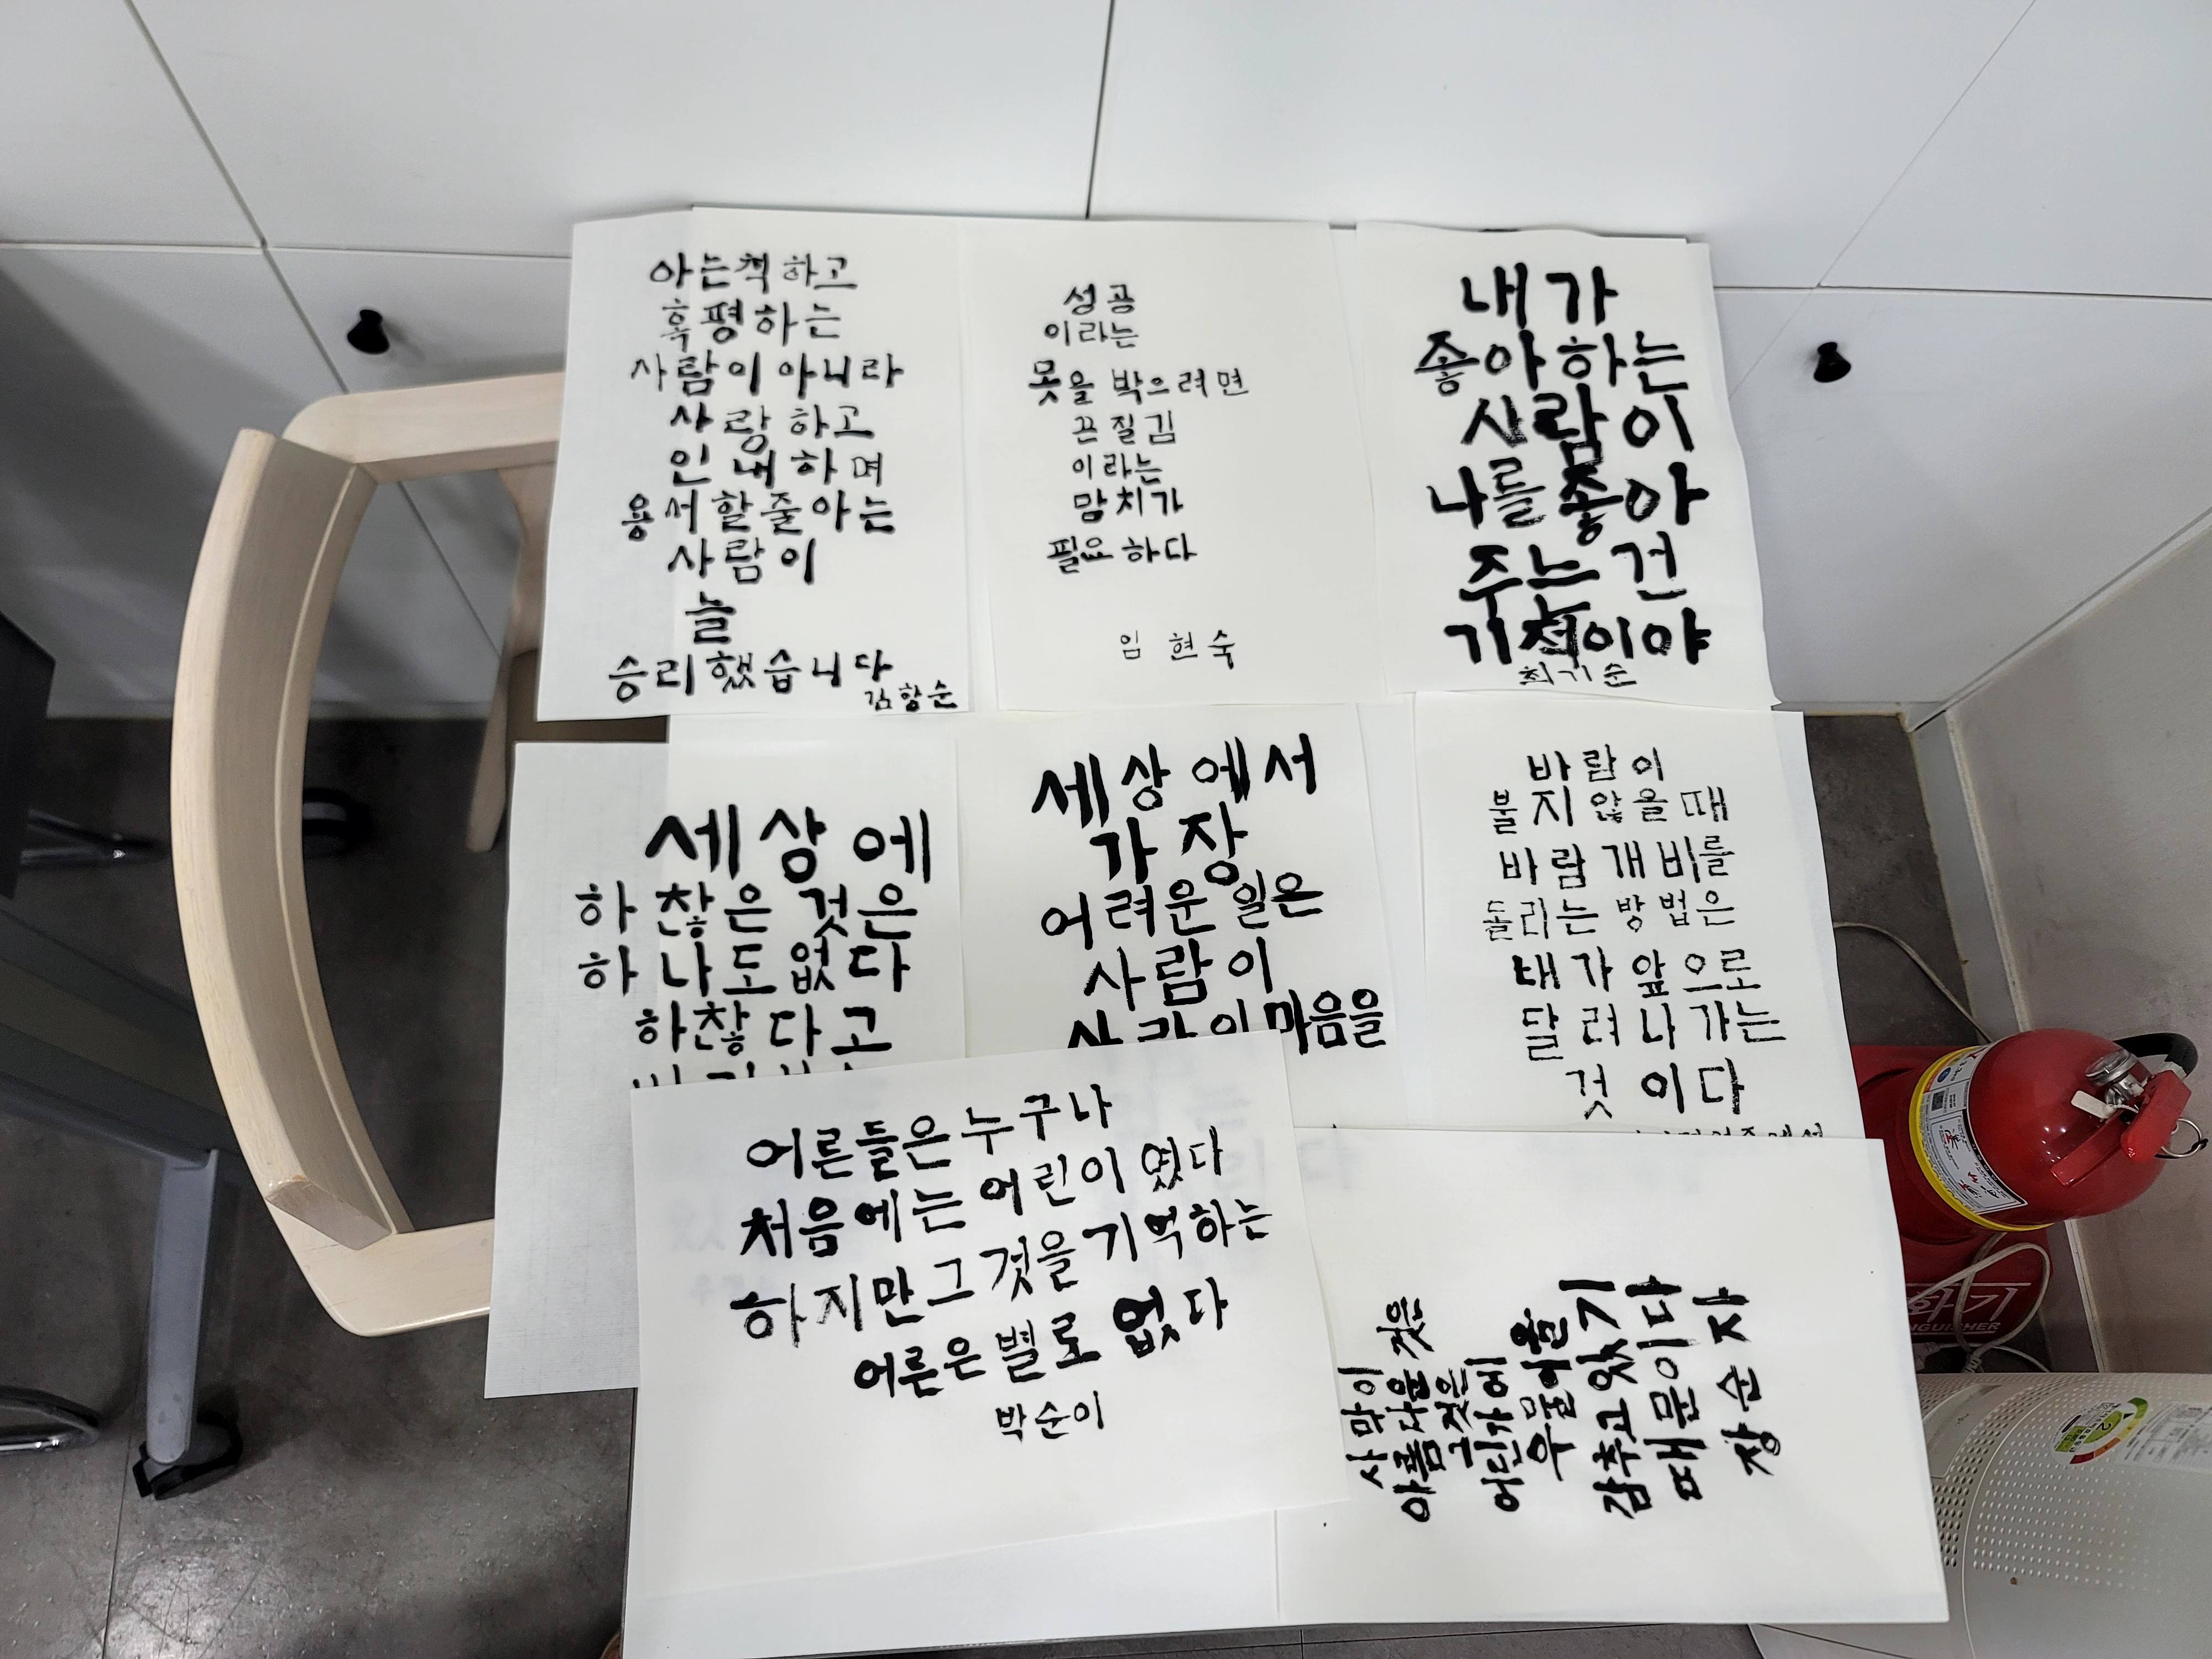 아는척하고
혹평하는
사람이 아니라
사랑하고
인내하며
용서할줄아는
사람이
늘
승리했습니다
김항순
성공
이라는
못을 박으려면
끈질김
이라는
망치가
필요하다
임현숙
내가
좋아하는
사람이
나를 좋아
주는 건
기적이야
최기순
세상에
하찮은 것은
하나도 없다
하찮다고
세상에서
가장
어려운 일은
사람이
사람이 마음을
바람이
불지 않을 때
바람개비를
돌리는 방법은
내가 앞으로
달려 나가는
것이다
어른들은 누구나
처음에는 어린이 였다
하지만 그것을 기억하는
어른은 별로 없다
박순이
사막이
아름다운 것은
그것이
어딘가에
우물을
감추고 있기
때문이다
장순자
화기